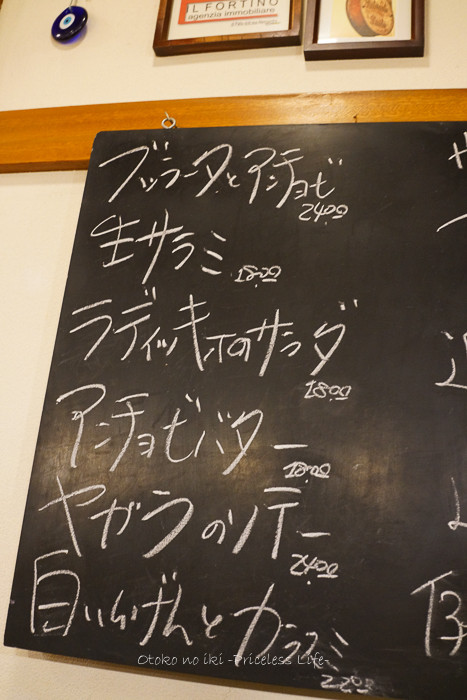 IL FORTINO
agenzia immobiliare
ブッラータとアンチョビ
2400
生サラミ
1800
ラディッキオのサラダ
1800
アンチョビバター
1800
ヤガラのソテー
2400
白いんげんとカラスミ
2200
Otoko no iki -Priceless Life-